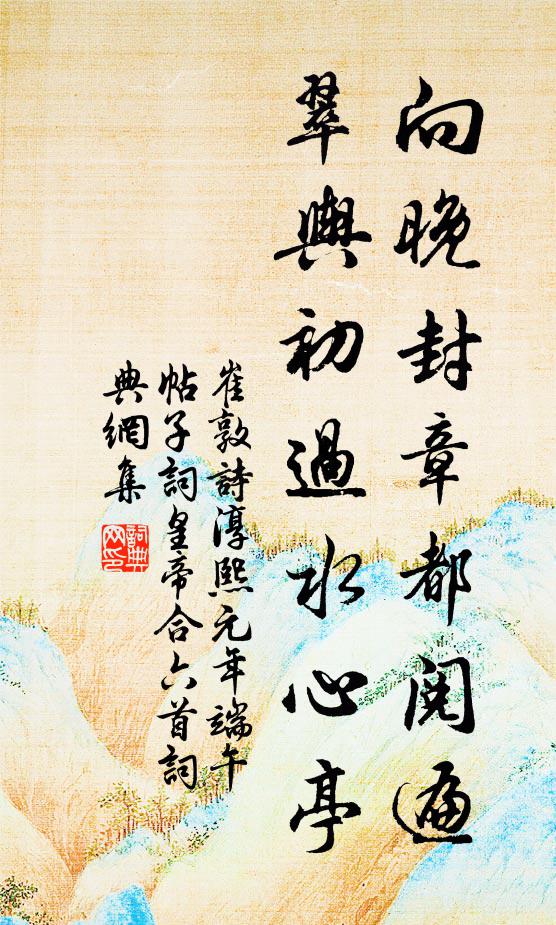 向晚封章都閱遍
翠輿初過水心亭
崔敦詩淳熙元年端午
帖子詞皇帝合六首詞
典網集
詞典
网印